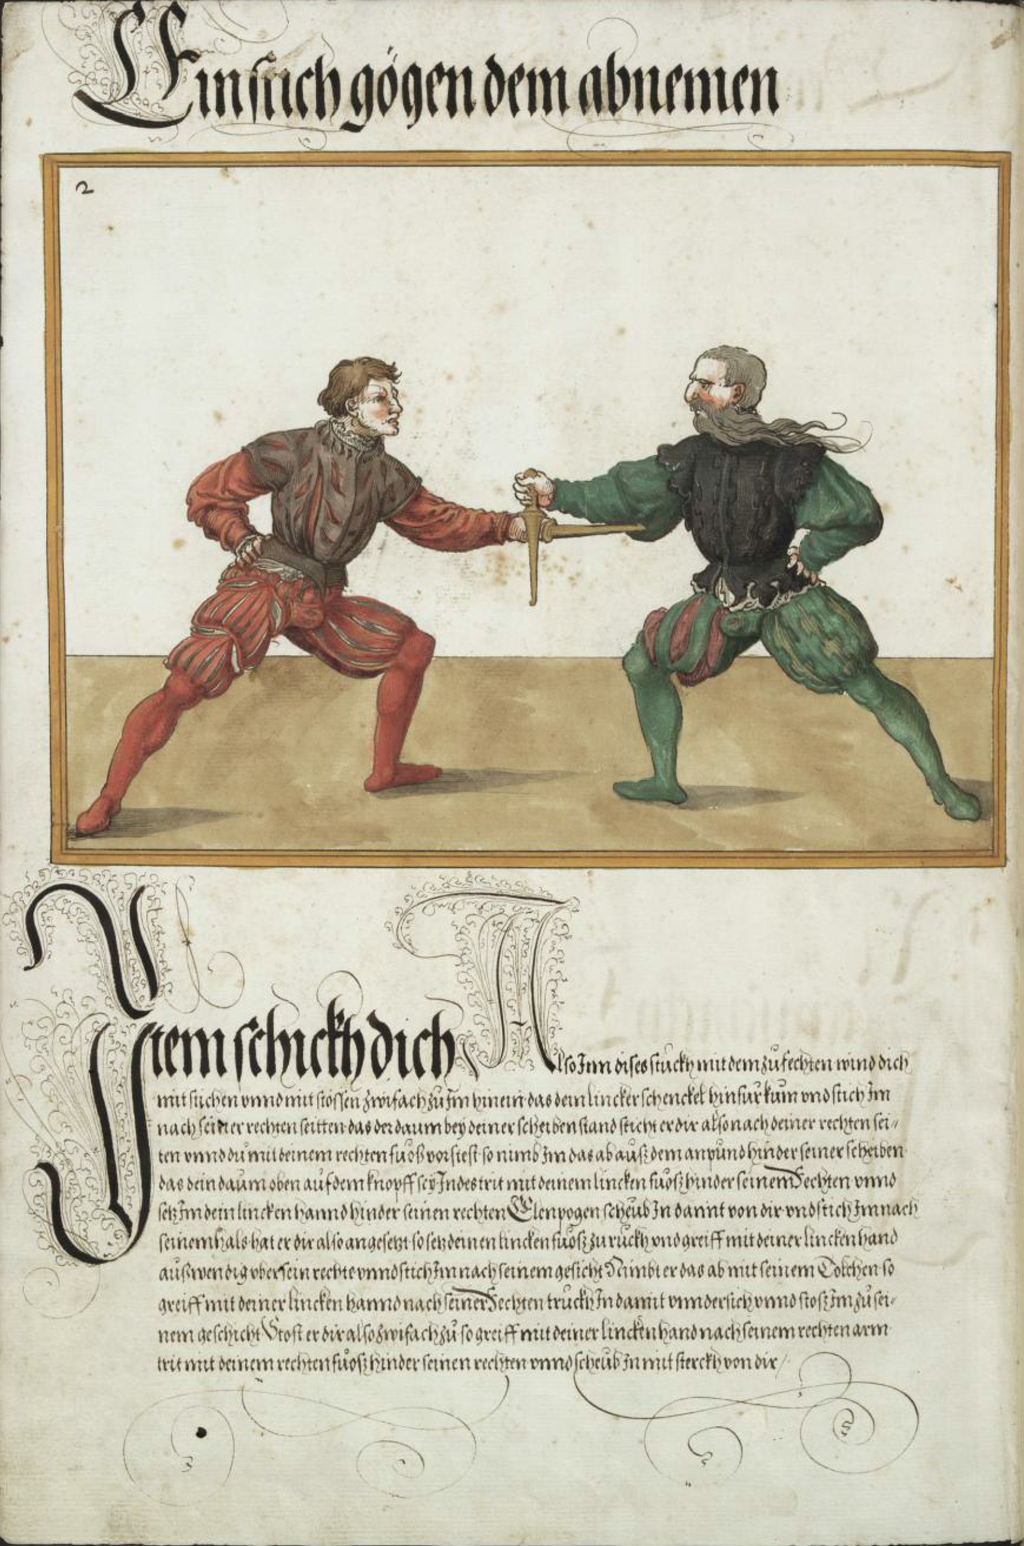 Ein stich gögen dem abnemen
2
Item schickh dich Also Inn dises stuckh mit dem zufechten wind dich
mit stichen vnnd mit stössen zwifach zu Im hinein das dein lincker schenckel hinfür kum vnd stich Im
nach seiner rechten seitten das der daum bey deiner scheiben stand sticht er dir also nach deiner rechten sei-
ten vnnd du mit deinem rechten fuoß vorstest so nimb Im das ab auß dem anpund hinder seiner scheiben
das dein daum oben auf dem knopff sey Indes trit mit deinem lincken fuosz hinder seinem Rechten vnnd
setz Im dein lincken hannd hinder seinen rechten Elenpogen scheub In damit von dir vnd stich Im nach
seinem hals hat er dir also angesetzt so setz deinen lincken fuosz zu ruckh vnd greiff mit deiner lincken hand
außwendig vber sein rechte vnnd stich Im nach seinem gesicht Nimbt er das ab mit seinem Tolchen so
greiff mit deiner lincken hannd nach seiner Rechten truckh In damit vnndersich vnnd stosz Im zu sei-
nem geschicht Stost er dir also zwifach zu so greiff mit deiner lincken hand nach seinem rechten arm
trit mit deinem rechten fuosz hinder seinen rechten vnnd scheub In mit sterckh von dir /